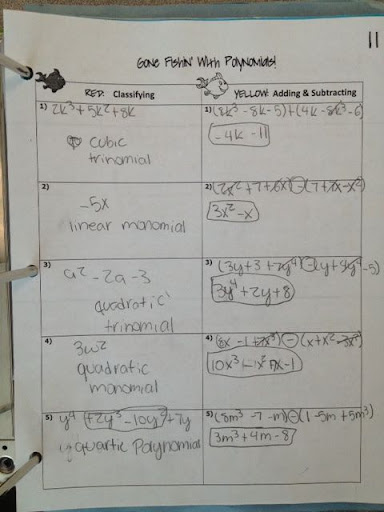 11
Gone Fishin' With Polynomials!
RED: Classifying
YELLOW: Adding & Subtracting
1) 2k³ + 5k² + 8k
cubic
trinomial
1) (8k³ - 8k - 5) + (4k - 8k³ - 6)
-4k - 11
2)
-5x
linear monomial
2) (2x² + 7 + 6x) - (7 + 7x - x²)
3x² - x
3) a² - 2a - 3
quadratic
trinomial
3) (3y + 3 + 7y⁴) - (y + 4y⁴ - 5)
3y⁴ + 2y + 8
4) 3w²
quadratic
monomial
4) (8x - 1 + 7x³) - (x + x² - 3x³)
10x³ - x² + 7x - 1
5) y⁴ + 2y³ - 10y² + 7y
quartic Polynomial
5) (8m³ - 7 - m) - (1 - 5m + 5m³)
3m³ + 4m - 8